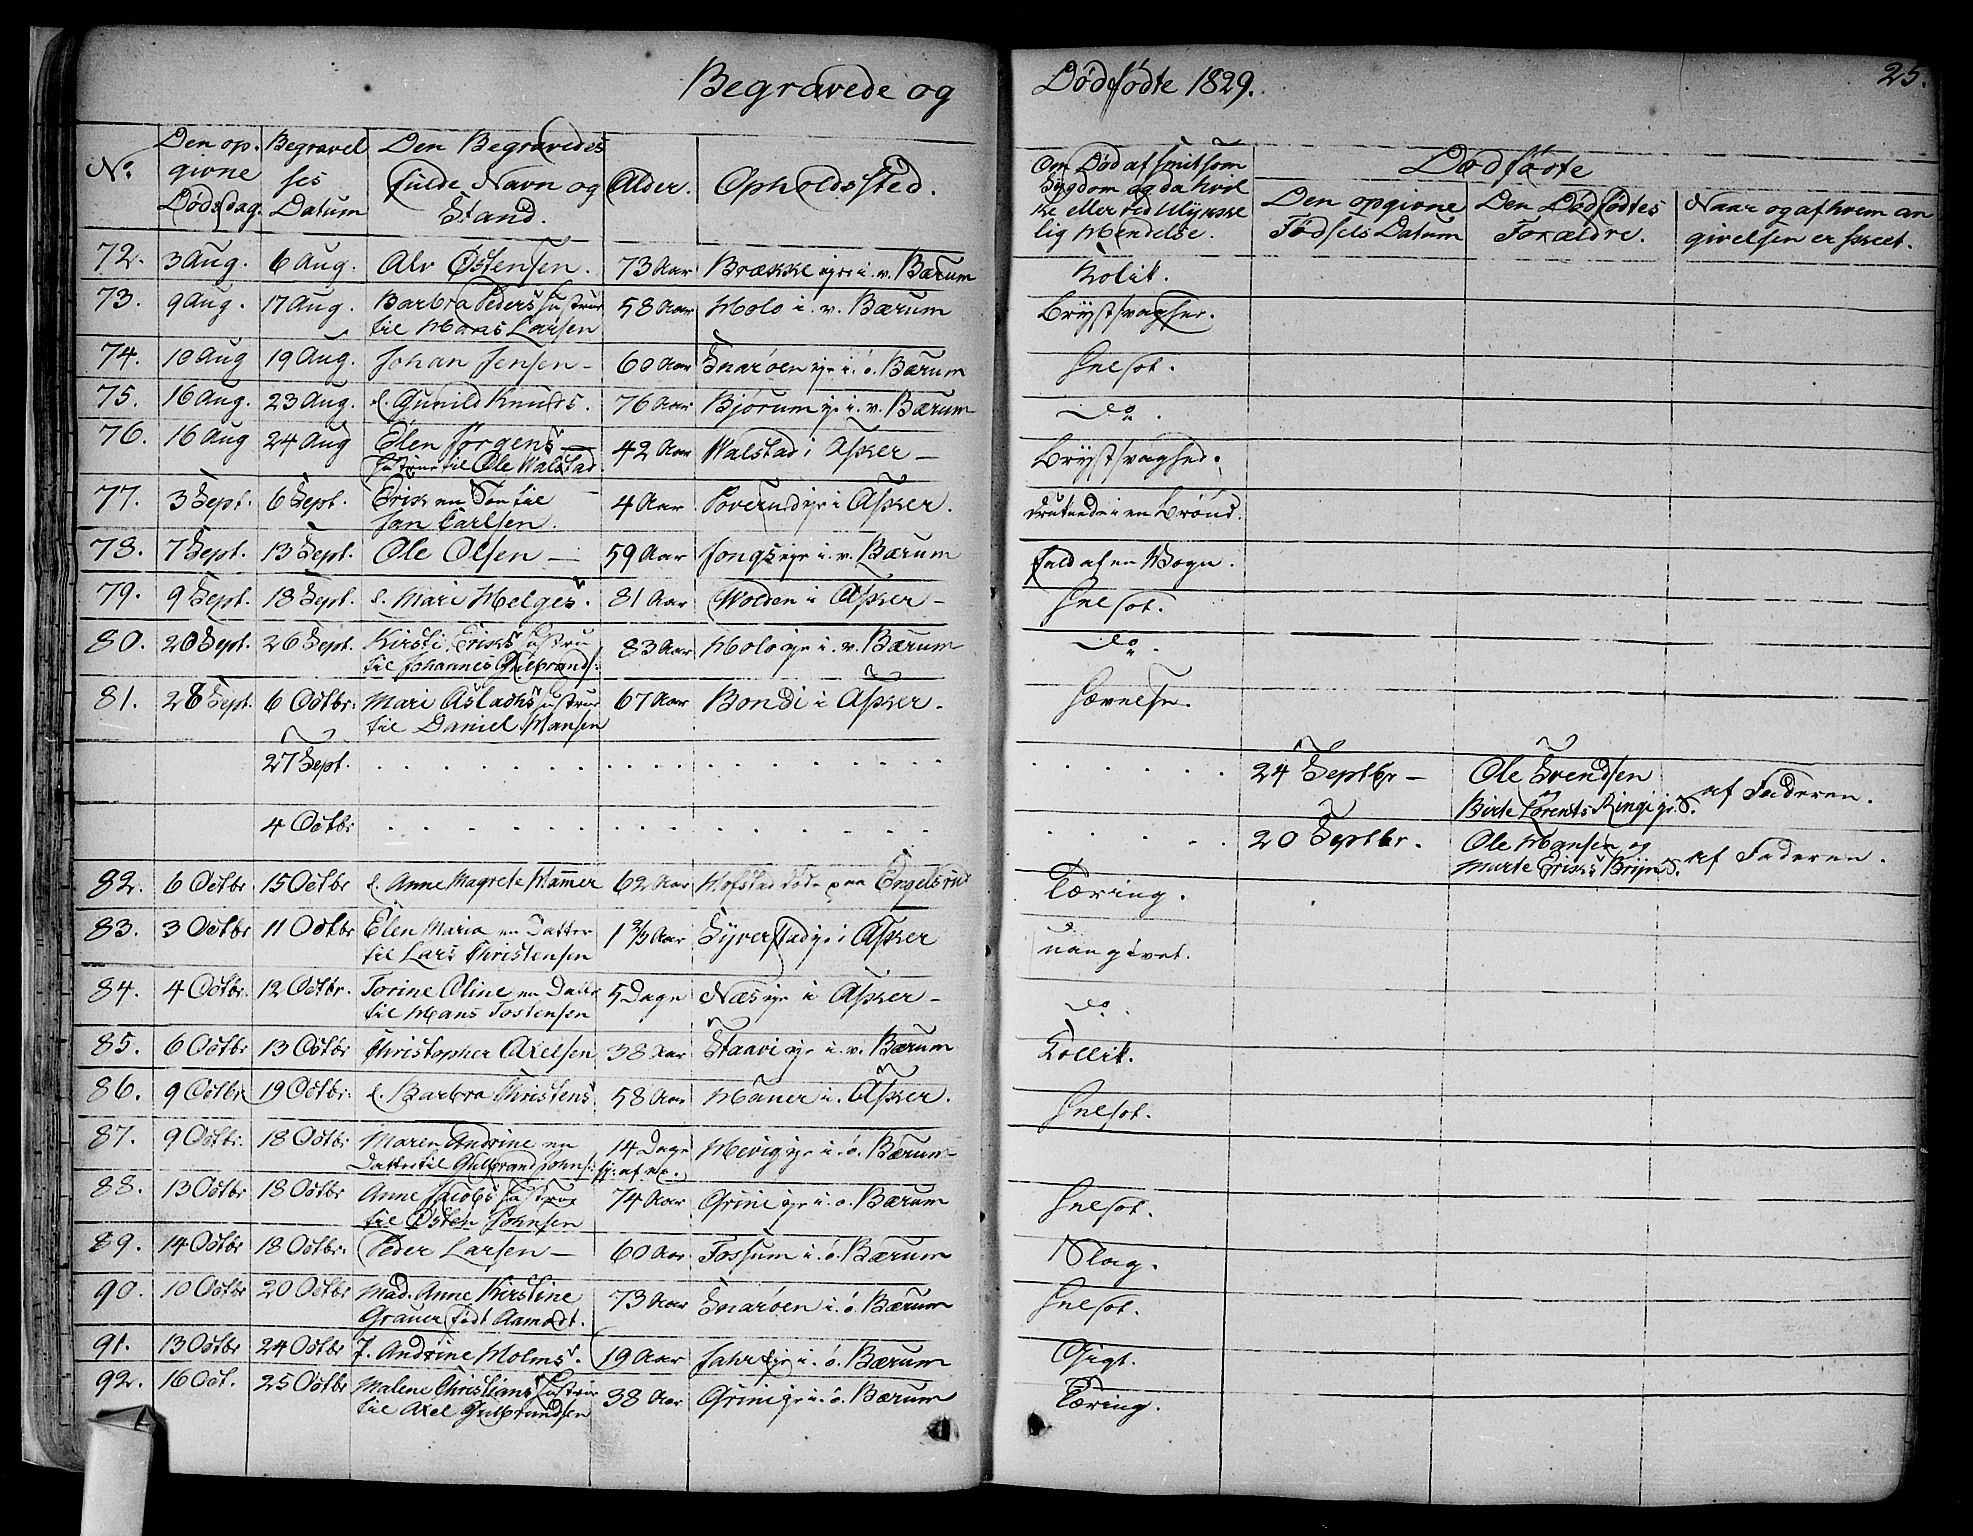 Begravede og Dødfødte 1829. 25.
No. Den op- givne Dødsdag. Begravel ses Datum Den Begravedes fulde Navn og Stand. Alder. Opholdssted. Om Død af smitsom Sygdom og da hvil ke eller ved Ulykke lig Hendelse. Dødfødte
Den opgivne Fødsels Datum Den Dødfødtes Forældre. Naar og af hvem an givelsen er skeet.
72. 3 Aug. 6 Aug. Alv Østensen. 73 Aar Brække eje i. v. Bærum Kolik.
73. 9 Aug. 17 Aug. Barbra Peders Hustrue 58 Aar Holo i. v. Bærum Brystsvaghed.
til Hans Larsen
74. 10 Aug 19 Aug. Johan Jensen - 60 Aar Snarøen eje i. ö. Bærum Inelsot.
75. 16 Aug. 23 Aug. e. Gunild Knuds. 76 Aar Bjorum eje i. v. Bærum do.
76. 16 Aug 24 Aug Elen Jörgens - 42 Aar Walstad i Asker - Brystsvaghed.
Hustrue til Ole Walstad.
77. 3 Sept. 6 Sept. Erik en Søn til 4 Aar Poverud eje i Asker. druknede i en Brönd.
Jan Carlsen.
78. 7 Sept. 13 Sept. Ole Olsen - 59 Aar Jongs eje i. v. Bærum fald af en Wogn.
79. 9 Sept. 18 Sept. e. Mari Helges. 81 Aar Wolden i Asker - Inelsot.
80. 20 Sept. 26 Sept. Kirsti Eriks Hustru 83 Aar Holo eje i. v. Bærum do.
til Johannes Gulbrands:
81. 28 Sept. 6 Octbr: Mari Aslachs Hustrue 67 Aar Bondi i Asker. Hævelse.
til Daniel Hansen
27 Sept. 24 Septbr - Ole Svendsen af Faderen.
Birte Lorents Ringi eje.
4 Octbr 20 Septbr. Ole Hansen og af Faderen.
Marte Eriks Bryn
82. 6 Octbr 15 Octbr e. Anne Magrete Hamer 62 Aar Hofstad døde paa Engelsrud Tæring.
83. 3 Octbr 11 Octbr Elen Maria en Datter 1 2/3 Aar Syverstad eje i Asker uangivet.
til Lars Christensen
84. 4 Octbr. 12 Octbr. Torine Oline en Datter 5 Dage Næs eje i Asker - do.
til Hans Tostensen
85. 6 Octbr 13 Octbr Christopher Axelsen 38 Aar Staavi eje i. v. Bærum Kollik.
86. 9 Octbr 19 Octbr. e. Barbra Christens 58 Aar Haner i. Asker. Inelsot.
87. 9 Octbr. 18 Octbr Maren Andrine en 14 Dage Hevig eje i. ö. Bærum
Datter til Gulbrand Johns:
88. 13 Octbr 18 Octbr Anne Jacobs Hustrue 74 Aar Grini eje i. ö. Bærum Inelsot.
til Østen Johnsen
89. 14 Octbr 18 Octbr. Peder Larsen - 60 Aar Fossum i. ö. Bærum Slag.
90. 10 Octbr 20 Octbr Mad. Anne Kirstine 73 Aar Snarøen i. ö. Bærum Inelsot.
Grauer født Aamodt.
91. 13 Octbr 24 Octbr J. Andrine Holms. 19 Aar Jahr eje i. ö. Bærum Gigt.
92. 16 Oct. 25 Octbr Malene Christians Hustrue 38 Aar Grini eje i. ö. Bærum Tæring.
til Axel Gulbrandsen